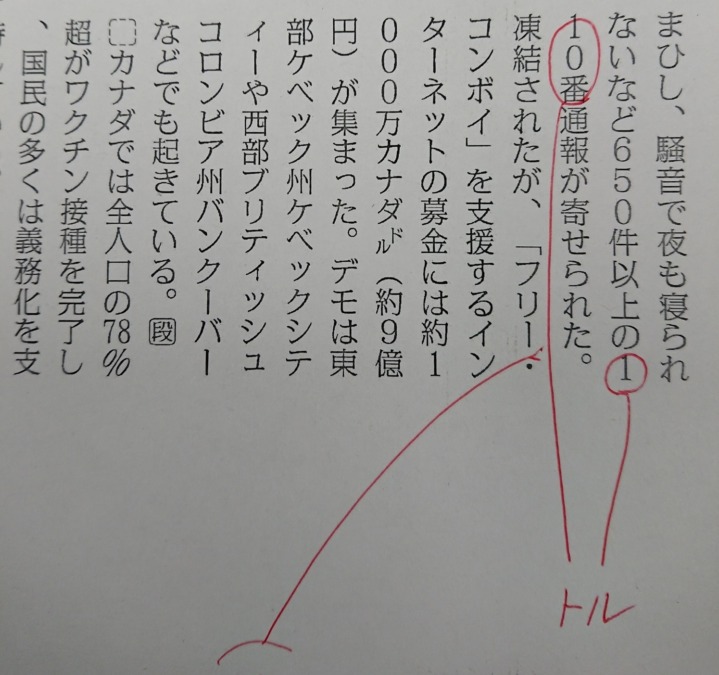 まひし、騒音で夜も寝られ
ないなど650件以上の1
10番通報が寄せられた。
凍結されたが、「フリー・
コンボイ」を支援するイン
ターネットの募金には約1
000万カナダ㌦（約9億
円）が集まった。デモは東
部ケベック州ケベックシテ
ィーや西部ブリティッシュ
コロンビア州バンクーバー
などでも起きている。段
カナダでは全人口の78%
超がワクチン接種を完了し
、国民の多くは義務化を支
トル